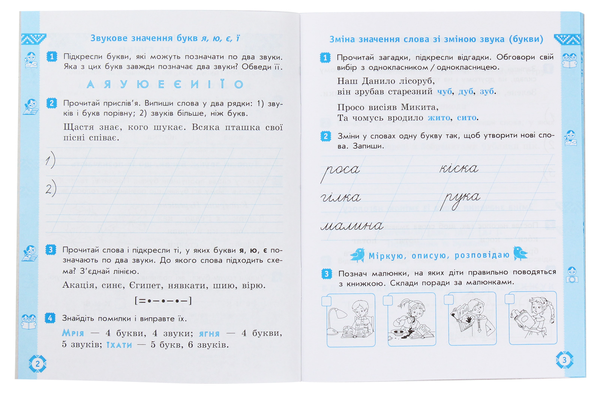 Звукове значення букв я, ю, є, ї
1 Підкресли букви, які можуть позначати по два звуки.
Яка з цих букв завжди позначає два звуки? Обведи її.
А Я У Ю Е Є И І Ї О
2 Прочитай прислів'я. Випиши слова у два рядки: 1) зву-
ків і букв порівну; 2) звуків більше, ніж букв.
Щастя знає, кого шукає. Всяка пташка свої
пісні співає.
1)
2)
3 Прочитай слова і підкресли ті, у яких букви я, ю, є по-
значають по два звуки. До якого слова підходить схе-
ма? З'єднай лінією.
Акація, синє, Єгипет, нявкати, шию, вірю.
[=•–•–•–]
4 Знайдіть помилки і виправте їх.
Мрія — 4 букви, 4 звуки; ягня — 4 букви,
5 звуків; їхати — 5 букв, 6 звуків.
2
Зміна значення слова зі зміною звука (букви)
1 Прочитай загадки, підкресли відгадки. Обговори свій
вибір з однокласником / однокласницею.
Наш Данило лісоруб,
він зрубав старезний чуб, дуб, зуб.
Просо висіяв Микита,
Та чомусь вродило жито, сито.
2 Зміни у словах одну букву так, щоб утворити нові сло-
ва. Запиши.
роса кіска
гілка рука
малина
Міркую, описую, розповідаю
3 Познач малюнки, на яких діти правильно поводяться
з книжкою. Склади поради за малюнками.
3